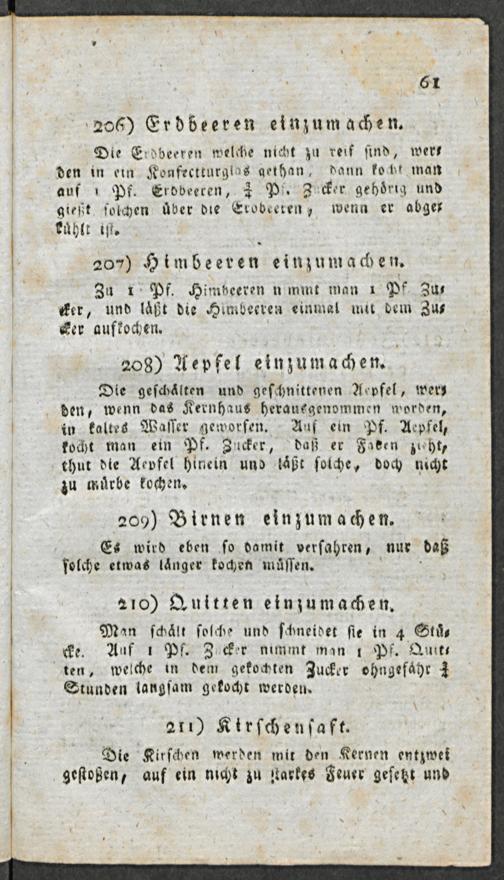 61
206) Erdbeeren einzumachen.
Die Erdbeeren welche nicht zu reif sind, wer⸗
den in ein Konfectturglas gethan, dann kocht man
auf 1 Pf. Erdbeeren, ¾ Pf. Zucker gehörig und
gießt solchen über die Erdbeeren, wenn er abge⸗
kühlt ist.
207) Himbeeren einzumachen.
Zu 1 Pf. Himbeeren nimmt man 1 Pf. Zu⸗
cker, und läßt die Himbeeren einmal mit dem Zu⸗
cker aufkochen.
208) Aepfel einzumachen.
Die geschälten und geschnittenen Aepfel, wer⸗
den, wenn das Kernhaus herausgenommen worden,
in kaltes Wasser geworfen. Auf ein Pf. Aepfel,
kocht man ein Pf. Zucker, daß er Faden zieht,
thut die Aepfel hinein und läßt solche, doch nicht
zu mürbe kochen.
209) Birnen einzumachen.
Es wird eben so damit verfahren, nur daß
solche etwas länger kochen müssen.
210) Quitten einzumachen.
Man schält solche und schneidet sie in 4 Stü⸗
cke. Auf 1 Pf. Zucker nimmt man 1 Pf. Quit⸗
ten, welche in dem gekochten Zucker ohngefähr ¾
Stunden langsam gekocht werden.
211) Kirschensaft.
Die Kirschen werden mit den Kernen entzwei
gestoßen, auf ein nicht zu starkes Feuer gesetzt und